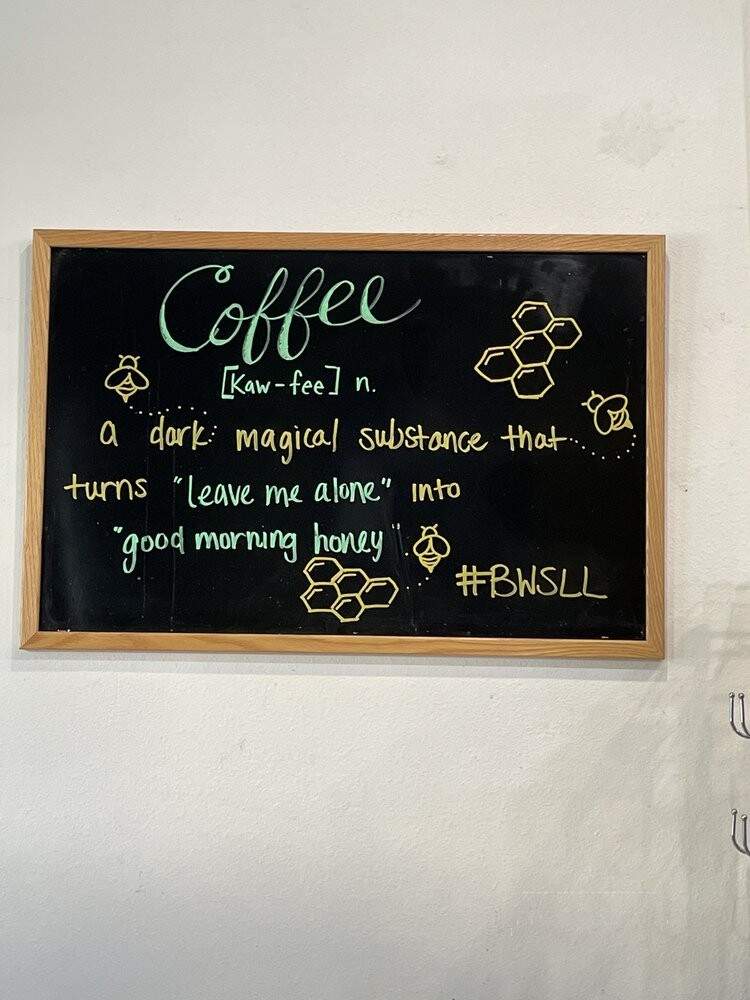 Coffee
[Kaw-fee] n.
a dark magical substance that
turns "leave me alone" into
"good morning honey"
#BWSLL